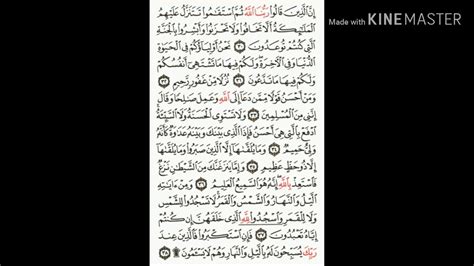 إِنَّ ٱلَّذِينَ قَالُوا۟ رَبُّنَا ٱللَّهُ ثُمَّ ٱسْتَقَـٰمُوا۟ تَتَنَزَّلُ عَلَيْهِمُ
ٱلْمَلَـٰٓئِكَةُ أَلَّا تَخَافُوا۟ وَلَا تَحْزَنُوا۟ وَأَبْشِرُوا۟ بِٱلْجَنَّةِ
ٱلَّتِى كُنتُمْ تُوعَدُونَ ٣٠ نَحْنُ أَوْلِيَآؤُكُمْ فِى ٱلْحَيَوٰةِ
ٱلدُّنْيَا وَفِى ٱلْـَٔاخِرَةِ وَلَكُمْ فِيهَا مَا تَشْتَهِىٓ أَنفُسُكُمْ
وَلَكُمْ فِيهَا مَا تَدَّعُونَ ٣١ نُزُلًا مِّنْ غَفُورٍ رَّحِيمٍ ٣٢
وَمَنْ أَحْسَنُ قَوْلًا مِّمَّن دَعَآ إِلَى ٱللَّهِ وَعَمِلَ صَـٰلِحًا وَقَالَ
إِنَّنِى مِنَ ٱلْمُسْلِمِينَ ٣٣ وَلَا تَسْتَوِى ٱلْحَسَنَةُ وَلَا ٱلسَّيِّئَةُ
ٱدْفَعْ بِٱلَّتِى هِىَ أَحْسَنُ فَإِذَا ٱلَّذِى بَيْنَكَ وَبَيْنَهُۥ عَدَٰوَةٌ كَأَنَّهُۥ
وَلِىٌّ حَمِيمٌ ٣٤ وَمَا يُلَقَّىٰهَآ إِلَّا ٱلَّذِينَ صَبَرُوا۟ وَمَا يُلَقَّىٰهَآ
إِلَّا ذُو حَظٍّ عَظِيمٍ ٣٥ وَإِمَّا يَنزَغَنَّكَ مِنَ ٱلشَّيْطَـٰنِ نَزْغٌ
فَٱسْتَعِذْ بِٱللَّهِ إِنَّهُۥ هُوَ ٱلسَّمِيعُ ٱلْعَلِيمُ ٣٦ وَمِنْ ءَايَـٰتِهِ
ٱلَّيْلُ وَٱلنَّهَارُ وَٱلشَّمْسُ وَٱلْقَمَرُ لَا تَسْجُدُوا۟ لِلشَّمْسِ
وَلَا لِلْقَمَرِ وَٱسْجُدُوا۟ لِلَّهِ ٱلَّذِى خَلَقَهُنَّ إِن كُنتُمْ
إِيَّاهُ تَعْبُدُونَ ٣٧ فَإِنِ ٱسْتَكْبَرُوا۟ فَٱلَّذِينَ عِندَ
رَبِّكَ يُسَبِّحُونَ لَهُۥ بِٱلَّيْلِ وَٱلنَّهَارِ وَهُمْ لَا يَسْـَٔمُونَ ۩ ٣٨
Made with KINEMASTER